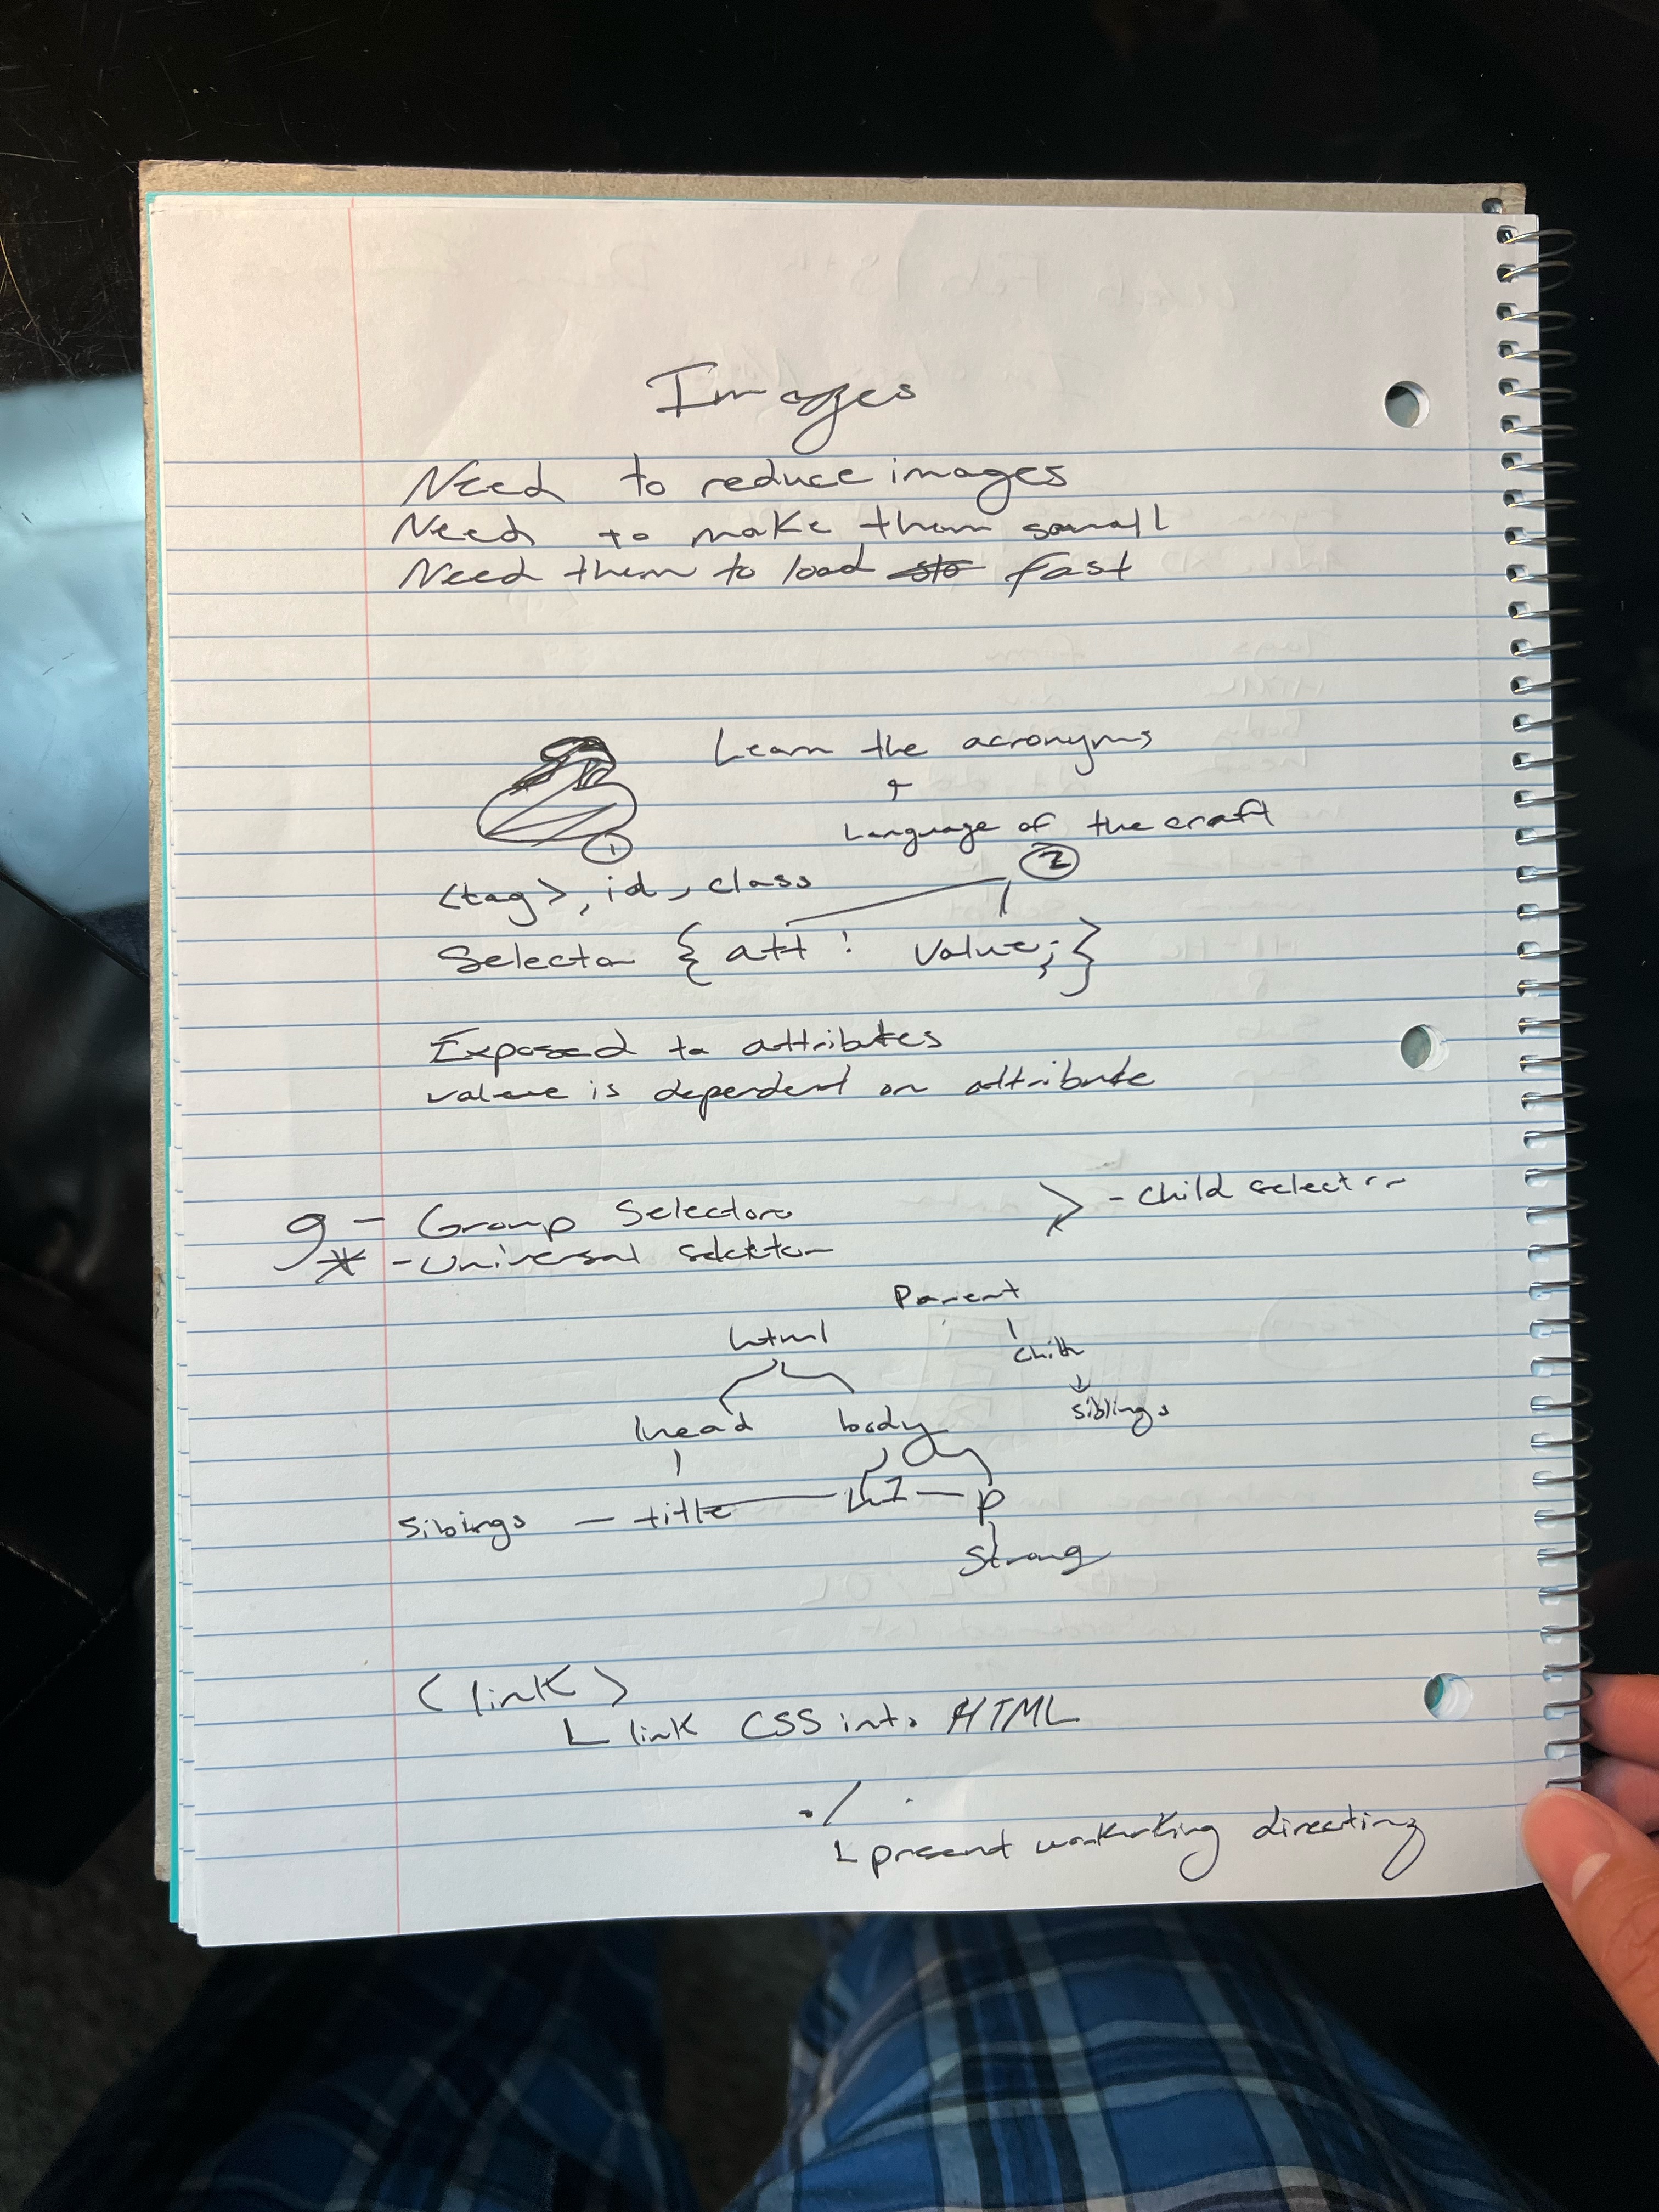 Images
Need to reduce images
Need to make them small
Need them to load fast
Learn the acronyms
Language of the craft
1
2
<tag>, id, class
Selector { att : value; }
Exposed to attributes
value is dependent on attribute
- Group Selectors
> - child selector
* - Universal selector
Parent
html
child
head body
siblings
siblings - title h1 - p
strong
<link>
link CSS into HTML
./
present working directing